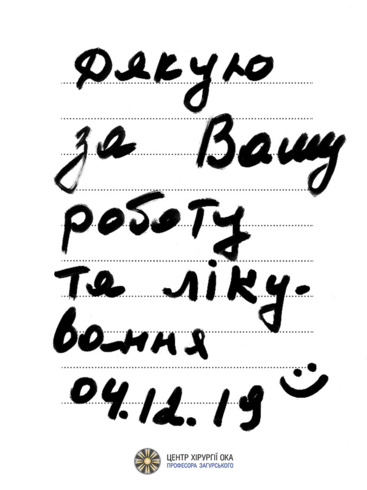 Дякую
за Вашу
роботу
та ліку-
вання
04.12.19
ЦЕНТР ХІРУРГІЇ ОКА
ПРОФЕСОРА ЗАГУРСЬКОГО